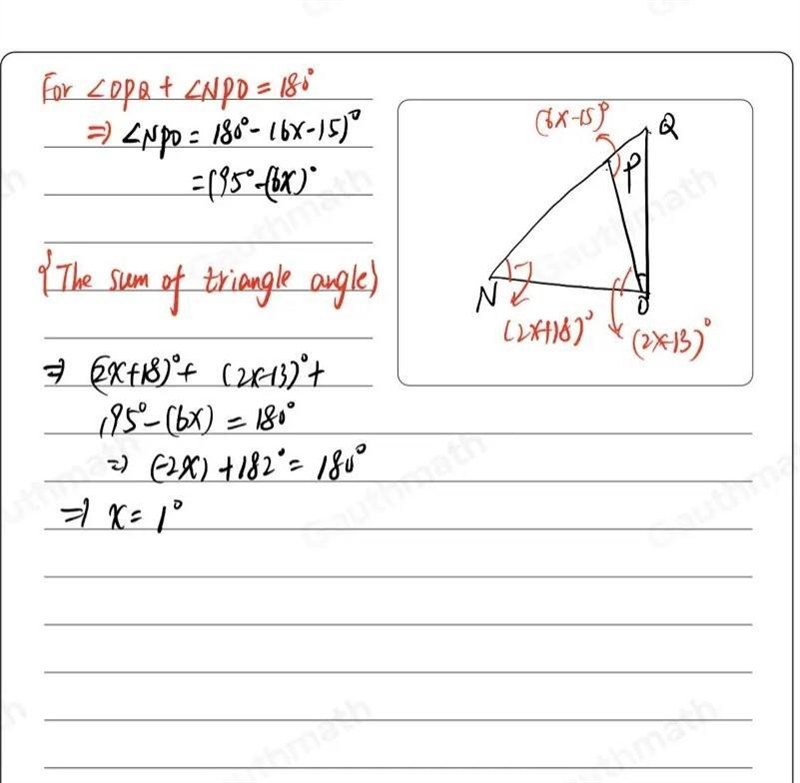 For ∠OPQ + ∠NPO = 180°
⇒ ∠NPO = 180° - (6x-15)°
= 195° - (6x)°
{The sum of triangle angle}
⇒ (2x+18)° + (2x-13)° +
195° - (6x) = 180°
⇒ (-2x) + 182° = 180°
⇒ x = 1°
(6x-15)°
Q
P
N
O
(2x+18)°
(2x-13)°
Gauthmath